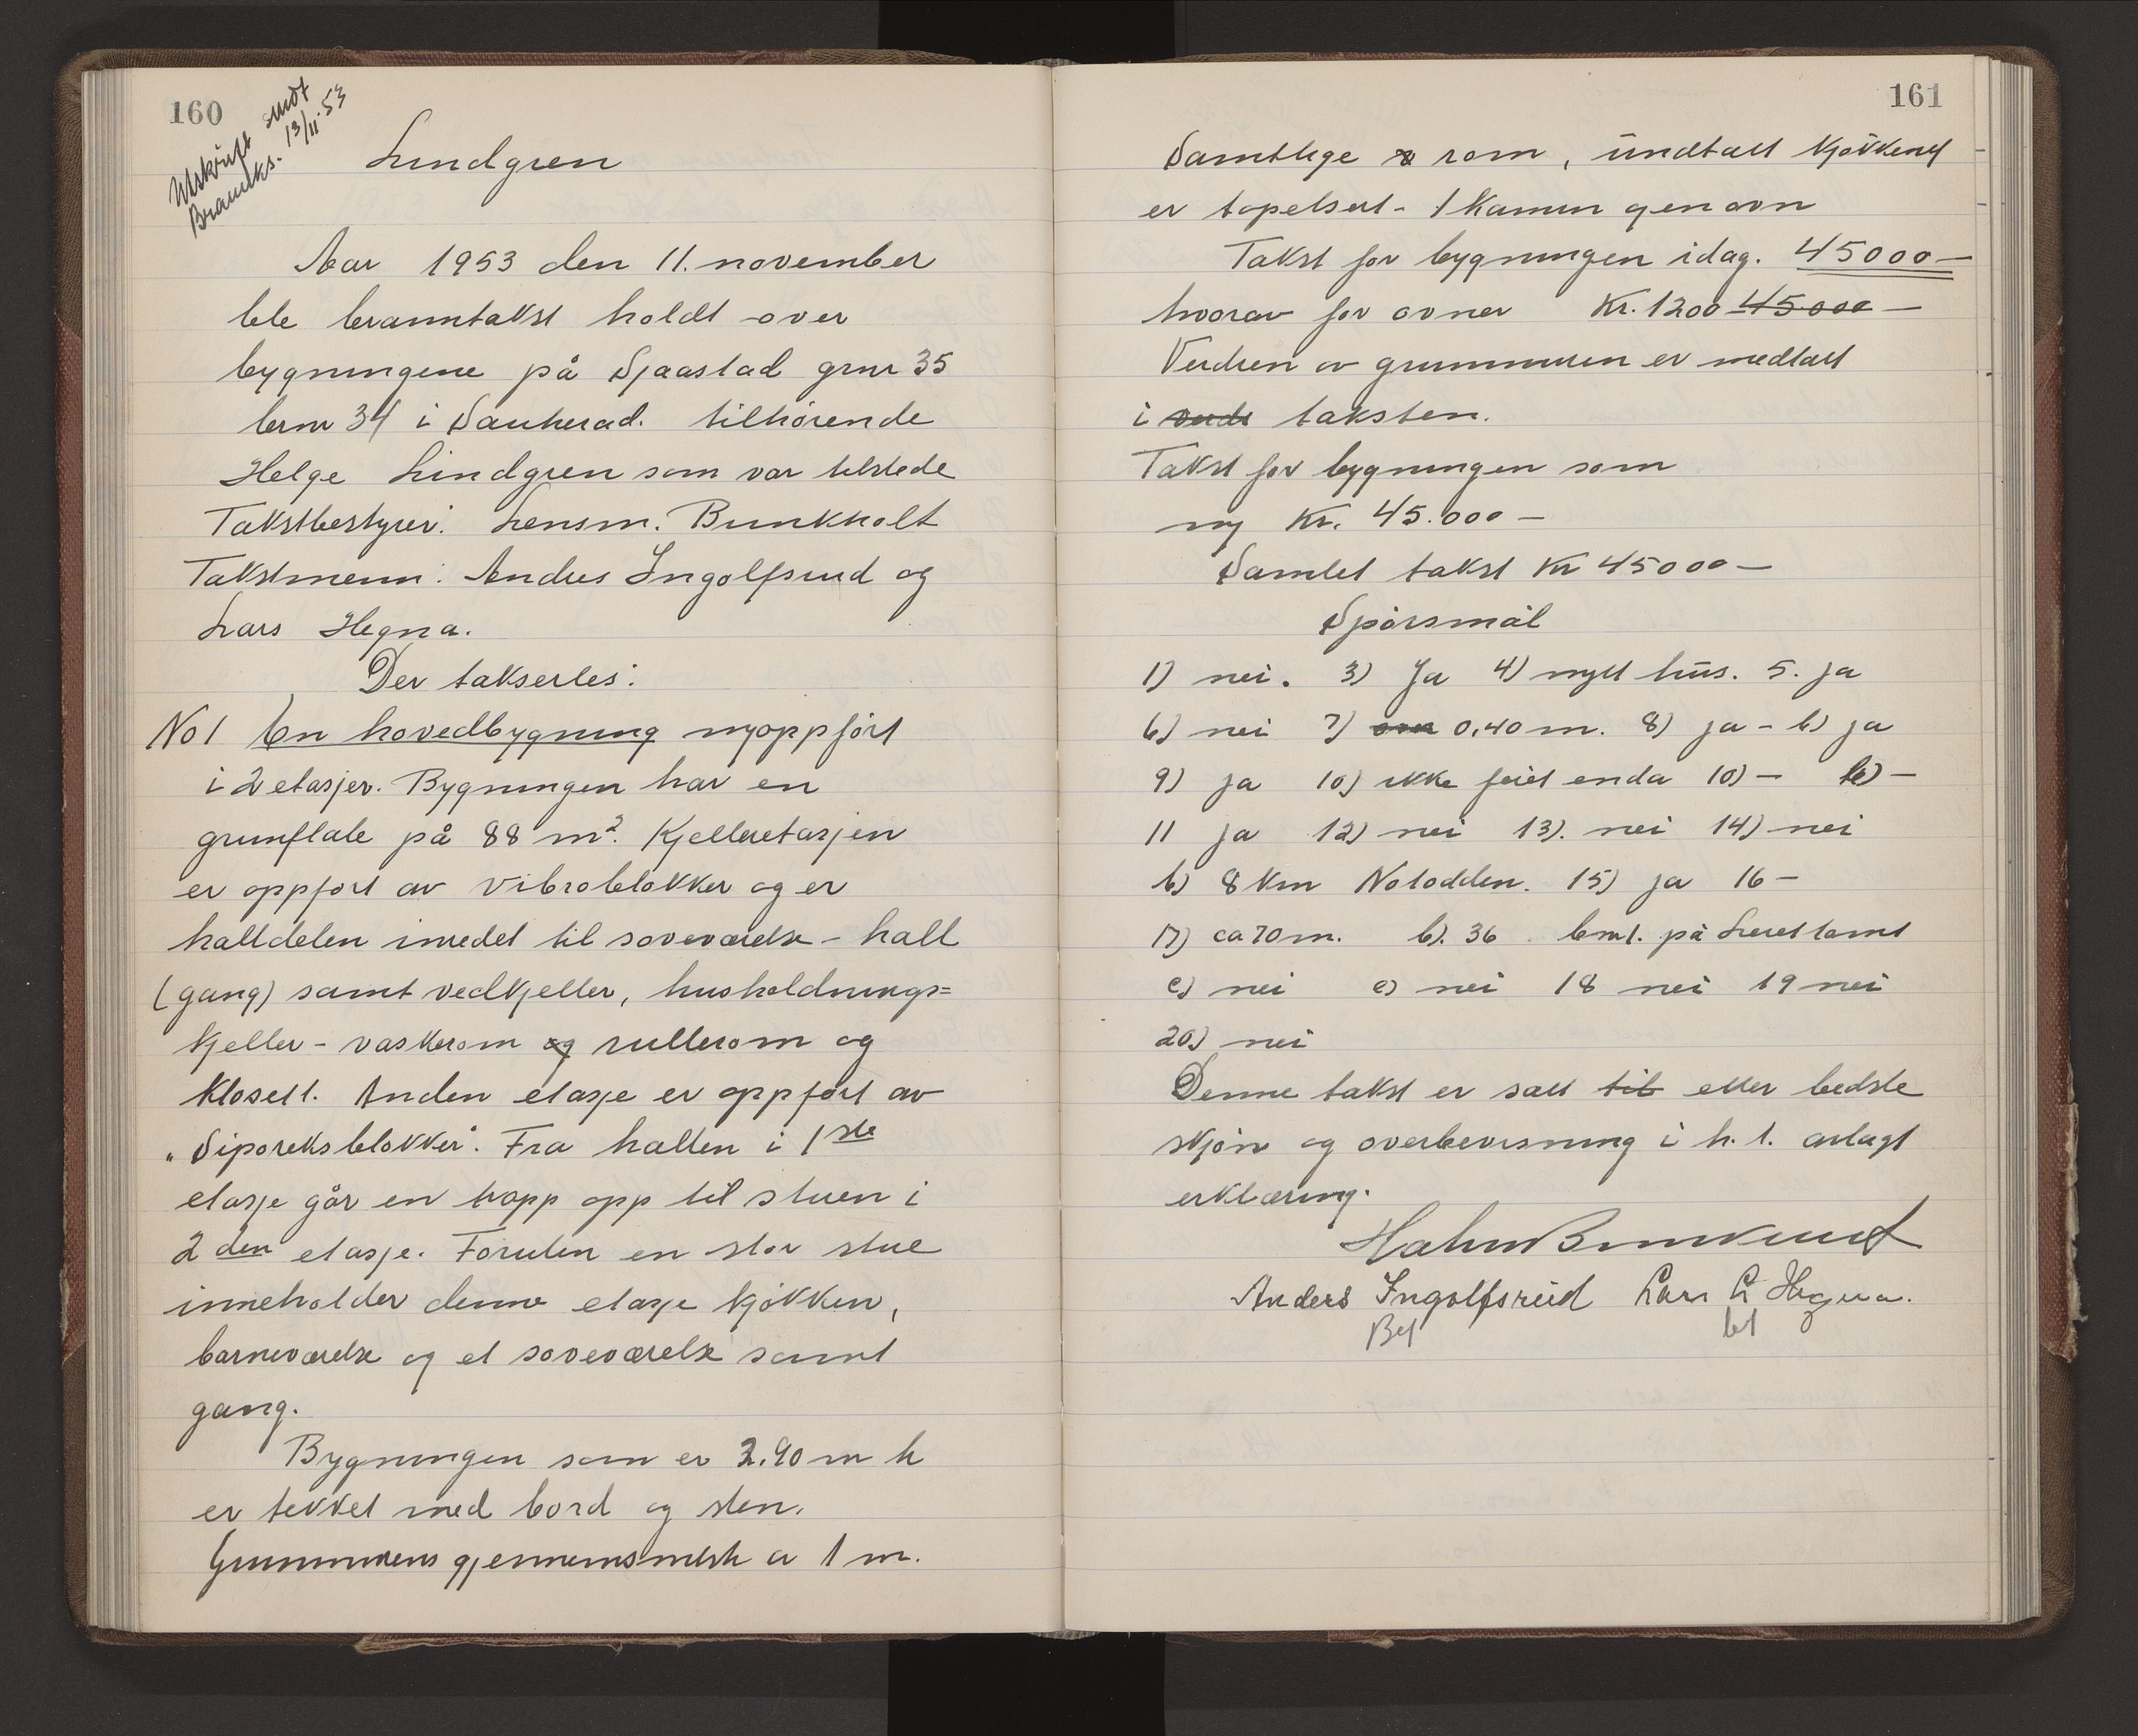 160
Utskrift sendt
Brannks. 13/11.53
Lindgren
Aar 1953 den 11. november
ble branntakst holdt over
bygningene på Sjaastad grnr 35
brnr 34 i Sauherad. tilhörende
Helge Lindgren som var tilstede
Takstbestyrer: Lensm. Bunkholt
Takstmenn: Anders Ingolfsrud og
Lars Hegna.
Der takserles:
No 1 En hovedbygning nyoppfört
i 2 etasjer. Bygningen har en
grunflate på 88 m². Kjelleretasjen
er oppfört av vibroblokker og er
halldelen inredet til soveværelse - hall
(gang) samt vedkjeller, husholdnings=
kjeller - vaskerom og rullerom og
klosett. Anden etasje er oppfört av
"Siporeksblokker". Fra hallen i 1ste
etasje går en trapp opp til stuen i
2den etasje. Foruten en stor stue
inneholder denne etasje kjökken,
barneværelse og et soveværelse samt
gang.
Bygningen som er 2.90 m h
er tekket med bord og sten.
Grunmurens gjennemsnitsh er 1 m.
161
Samtlige rom, undtatt kjökkenet
er tapetsert - 1 kamin og en ovn
Takst for bygningen idag. 45000 —
hvorav for ovner Kr. 1200 45.000 —
Verdien av grunnmuren er medtatt
i verdi taksten.
Takst for bygningen som
ny Kr. 45.000 —
Samlet takst Kr 45000 —
Spörsmål
1) nei. 3) Ja 4) nytt hus. 5. ja
6) nei 7) 0,40 m. 8) ja - b) ja
9) ja 10) ikke feiet enda 10) — b) —
11 ja 12) nei 13). nei 14) nei
b) 8 km Notodden. 15) ja 16 —
17) ca 70 m. b). 36 på
c) nei e) nei 18 nei 19 nei
20) nei
Denne takst er satt til etter bedste
skjön og overbevisning i h. t. avlagt
erklæring.
Anders Ingolfsrud Lars L Hegna.